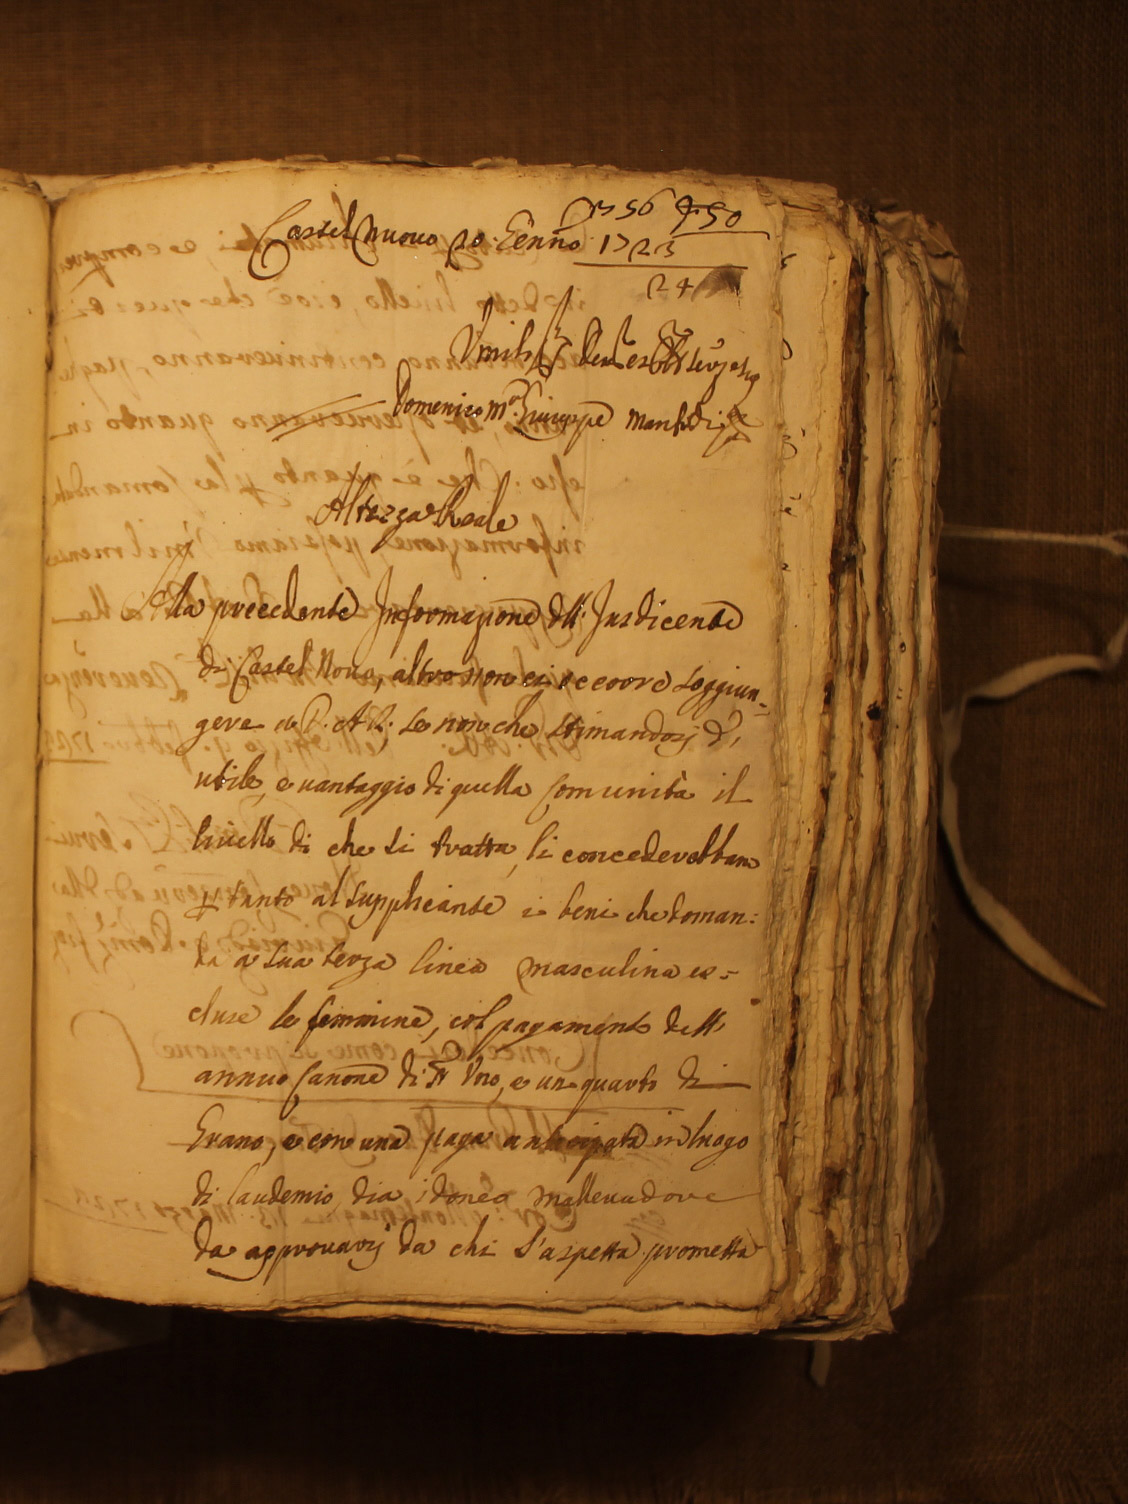 356 450
Castel nuouo 20: Genno 1723
24
Vmiliss:
Domenico Mª: Giuseppe Manfredi
Altezza Reale
Alla precedente Informazione dell: Jusdicente
di Castel Nouo, altro non ci occorre soggiun-
gere a V. A R: se non che stimandosi d'
utile, e uantaggio di quella Comunità il
liuello di che si tratta, li concederebbam
p tanto al Supplicante i beni che doman:
da a sua terza linea masculina es=
cluse le femmine, col pagamento dell'
annuo Canone di Vno, e un quarto di
Grano, e con una paga anticipata in luogo
di laudemio dia idoneo malleuadore
da approuarsi da chi s'aspetta prometta